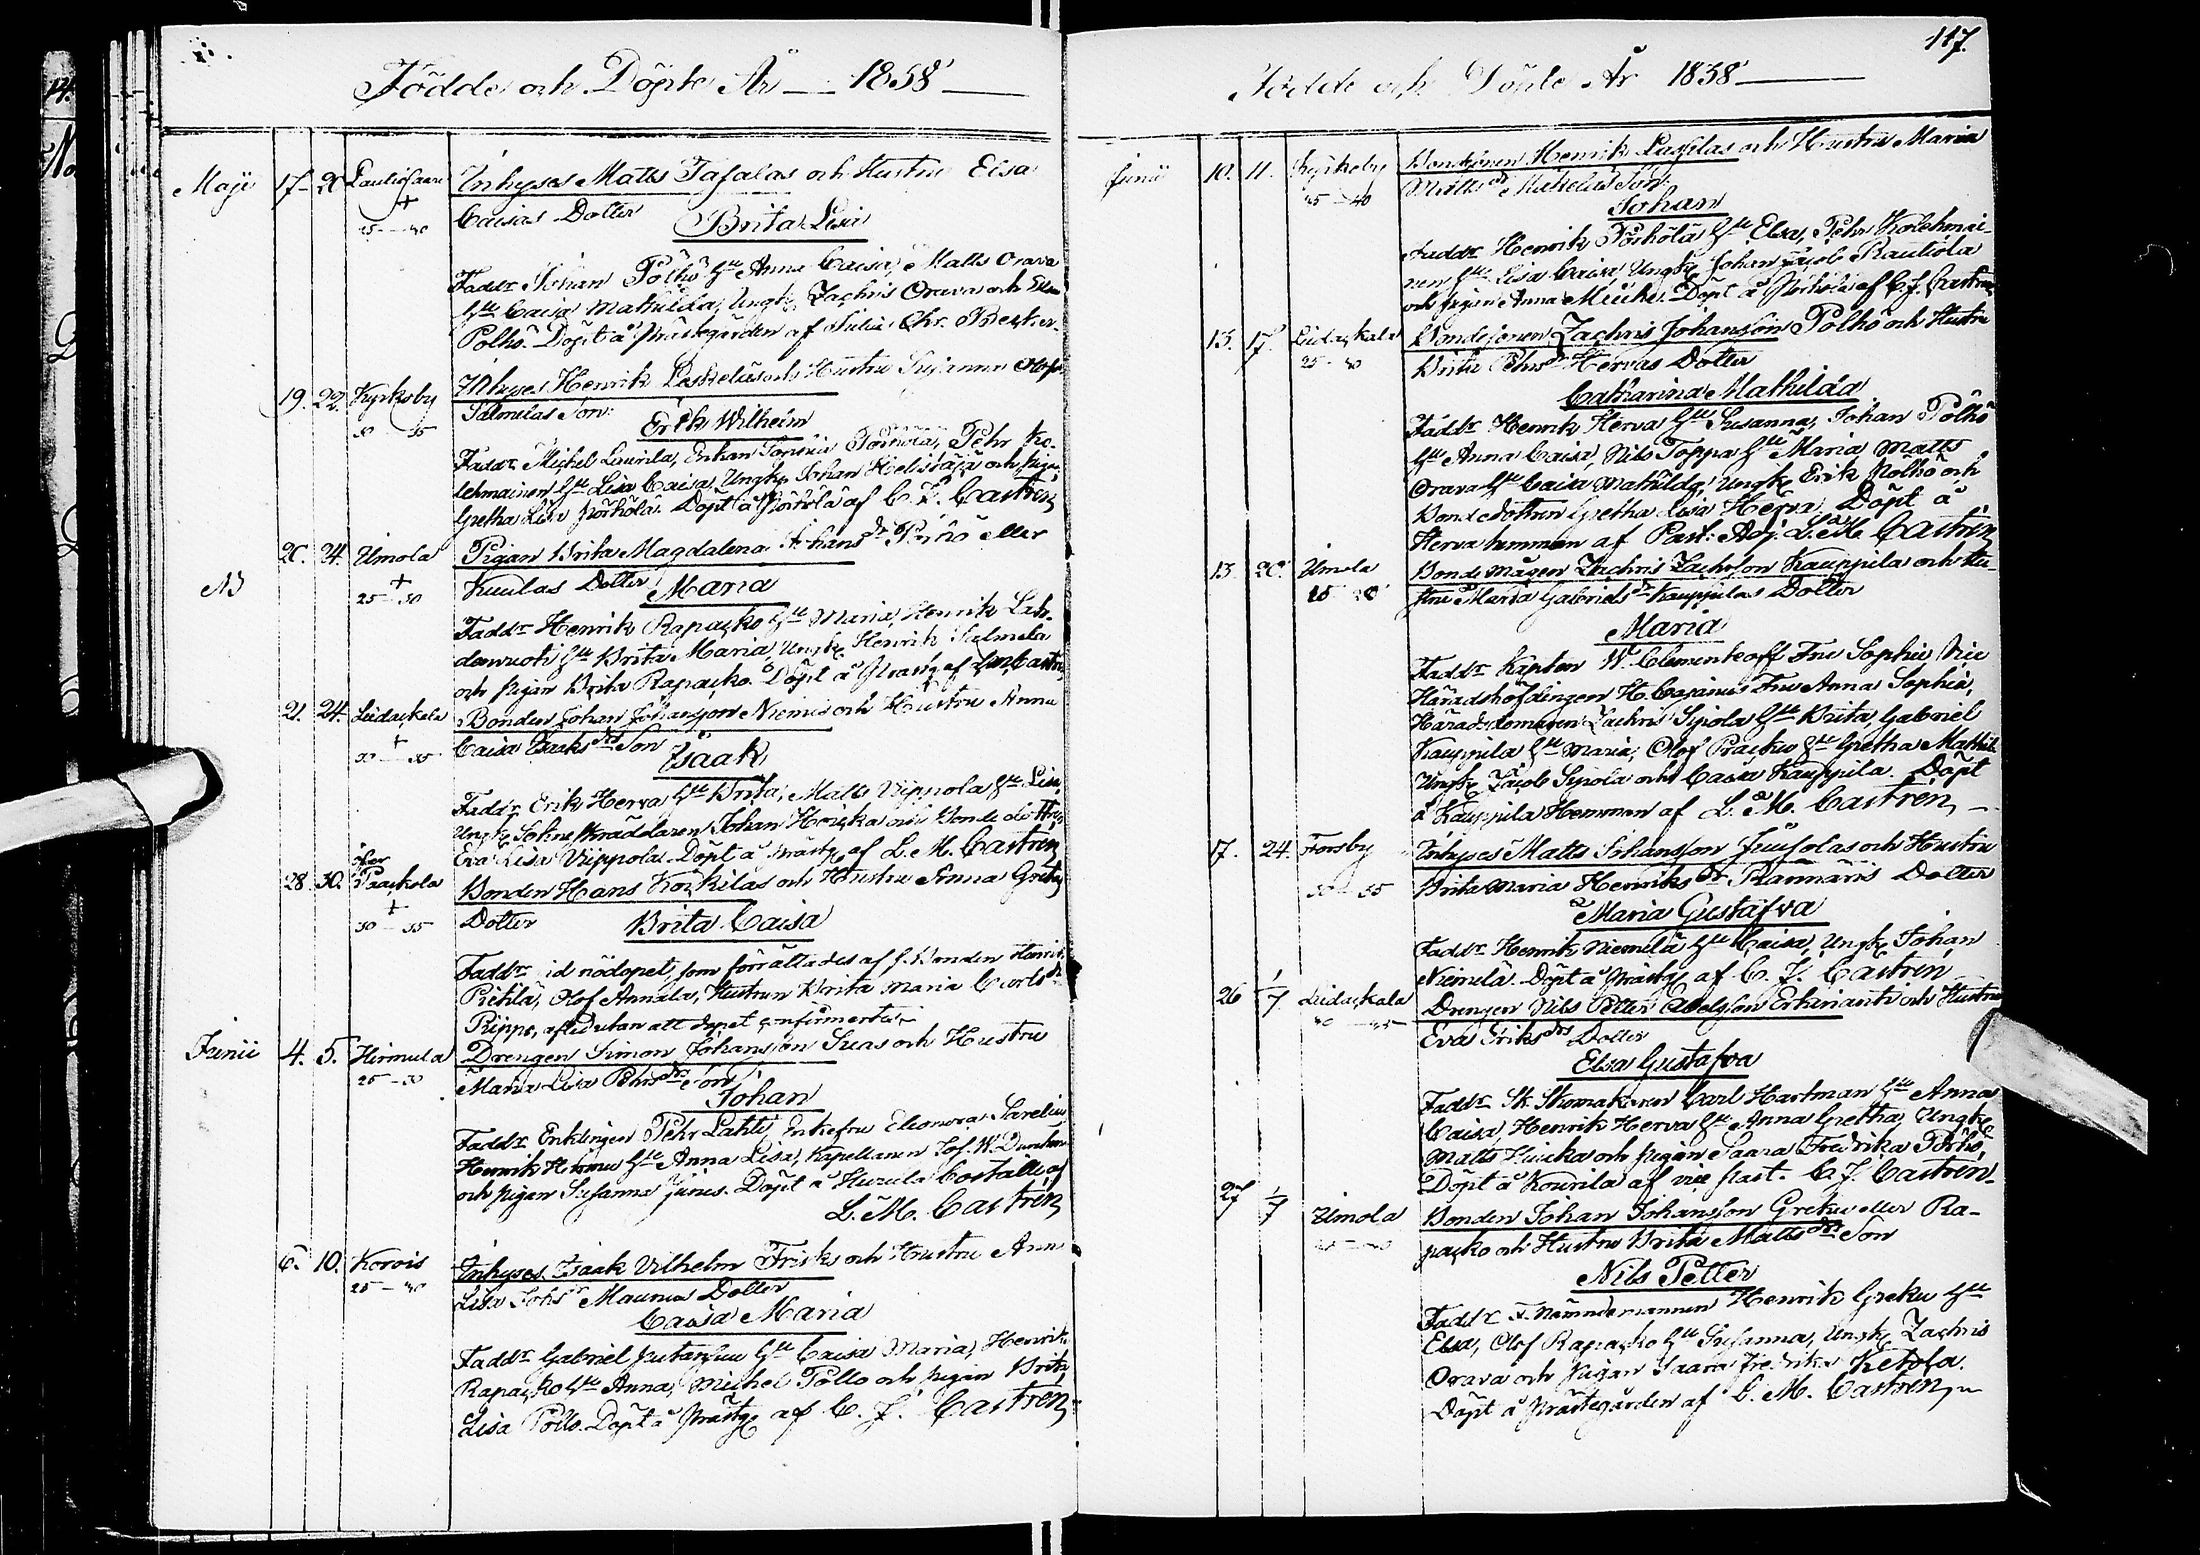 Födde och Döpte År 1838
Maji 17. 20. Pauliosaari Inhyses Matts Tafalas och Hustru Elsa
+
25–30 Caisas Dotter Brita Lisa
Faddr Johan Pölhö Hu Anna Caisa, Matts Orava
Hu Caisa Mathilda, Ungk Zachris Orava och
Pölhö. Döpt å Prästegården af Chr.
19. 22. Kyrkoby Inhyses Henrik Leskelas och Hustru Susanna
30–35 Salmelas Son. Erik Wilhelm
Faddr Michel Laurila, Enkan Sophia Pehr Ko-
lehmainen Hu Lisa Caisa, Ungk Johan och pigan
Gretha Lisa Pörhölä. Döpt å Pörhölä af C. J. Castrén
20. 24. Uimola Pigan Brita Magdalena Johans dr eller
N3 +
25–30 Kuulas Dotter Maria
Faddr Henrik Rapacko Hu Maria, Henrik Lah-
denvuoti Hu Brita Maria, Ungk Henrik Salmela
och pigan Brita Rapacko. Döpt å Prästg af
21. 24. Liedackala Bonden Johan Johansson Niemis och Hustru Anna
+
30–35 Caisa Isaks drs Son Isaak
Faddr Erik Herva Hu Brita, Matts Viippola Hu Lisa,
Ungk Johan och Bondedottren
Eva Lisa Viippola. Döpt å Prästg af L. M. Castrén
28. 30. Paackola Bonden Hans Koskilas och Hustru Anna Greta
+
30–35 Dotter Brita Caisa
Faddr vid nödopet, som förrättades af f. Bonden Henrik
Pietilä, Olof Annala, Hustrun Brita Maria Carls dr
Piippo, afled utan att dopet confirmerts
Junii 4. 5. Hirmula Drengen Simon Johansson Suas och Hustru
25–30 Maria Lisa Pehrs drs Son
Johan
Faddr Enklingen Pehr Lahti Enkefru Eleonora
Henrik Hu Anna Lisa, Kapellanen Jos. W.
och pigan Susanna Junes. Döpt å af
L. M. Castrén
6. 10. Korois Inhyses Isaak Vilhelm Frisks och Hustru Anna
25–30 Lisa Johs dr Maunus Dotter
Caisa Maria
Faddr Gabriel Hu Caisa Maria, Henrik
Rapacko Hu Anna, Michel Pöllo och pigan Brita
Lisa Pöllo. Döpt å Prästg af C. J. Castrén
117.
Födde och Döpte År 1838
Junii 10. 11. Kyrkoby Bondsonen Henrik Lassilas och Hustru Maria
35–40 Matts dr Mikelas Son.
Johan
Faddr Henrik Pörhölä Hu Elsa, Pehr Kolehmai-
nen Hu Lisa Caisa, Ungk Johan Jacob Rautiola
och pigan Anna Miicki. Döpt å Pörhölä af C. J. Castrén
13. 17. Liedackala Bondesonen Zachris Johansson Pölhö och Hustru
25–30 Brita Pehrs dr Hervas Dotter
Catharina Mathilda
Faddr Henrik Herva Hu Susanna, Johan Pölhö
Hu Anna Caisa, Nils Toppa Hu Maria, Matts
Orava Hu Caisa Mathilda, Ungk Erik Pölhö och
Bondedottren Gretha Lisa Herva. Döpt å
Herva hemman af Past: Adj. L. M. Castrén
13. 20. Uimola Bonde mågen Zachris Zachrsson Kauppila och Hu-
stru Maria Gabriels dr Kauppilas Dotter
Maria
Faddr Kapten W. Clementeoff Fru Sophie Vice
Häradshöfdingen H. Cajanus Fru Anna Sophia,
Häradsdomaren Zachris Sipola Hu Brita, Gabriel
Kauppila Hu Maria, Olof Paackus Hu Gretha Mathil.
Ungk Jacob Sipola och Caisa Kauppila. Döpt
å Kauppila Hemman af L. M. Castrén
17. 24. Forsby Inhyses Matts Johansson Juusolas och Hustru
30–35 Brita Maria Henriks dr Dotter
Maria Gustafva
Faddr Henrik Niemelä Hu Caisa, Ungk Johan
Niemelä. Döpt å Prästg af C. J. Castrén
26 1/7 Liedackala Drengen Nils Petter Abelsson Erkinantti och Hustru
Eva Eriks drs Dotter
Elsa Gustafva
Faddr Sk. Skomakaren Carl Hartman Hu Anna
Caisa, Henrik Herva Hu Anna Gretha, Ungk
Matts och pigan Saara Fredrika Pörhö,
Döpt å Kourila af vice past. C. J. Castrén.
27 1/7 Uimola Bonden Johan Johansson Greku eller Ra-
packo och Hustru Brita Matts drs Son
Nils Petter
Faddr F. Nämndemannen Henrik Greku Hu
Elsa, Olof Rapacko Hu Susanna, Ungk Zachris
Orava och Pigan Saara Fredrika Ketola.
Döpt å Prästegården af L. M. Castrén